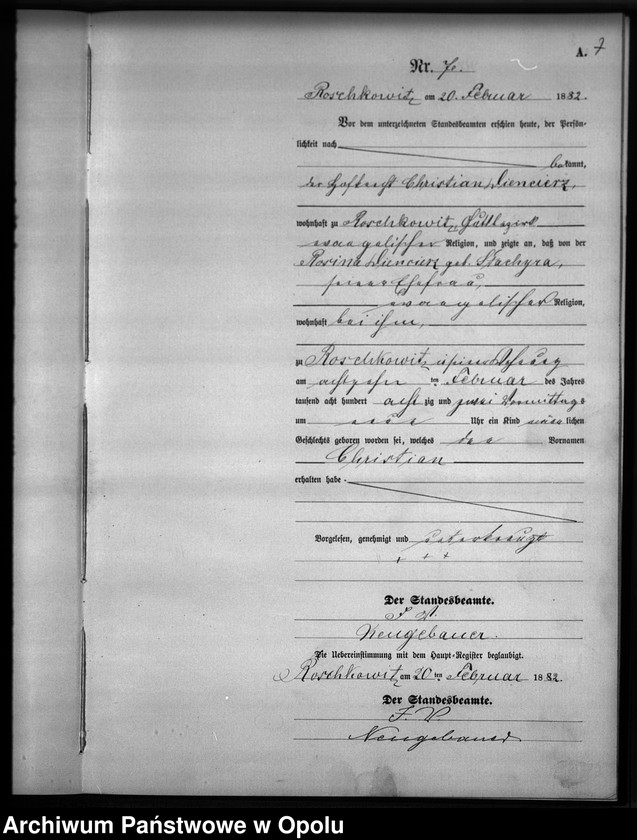 A. 7
Nr. 7.
Roschkowitz am 20. Februar 1882.
Vor dem unterzeichneten Standesbeamten erschien heute, der Persön-
lichkeit nach
bekannt,
der Hofknecht Christian Diencierz,
wohnhaft zu Roschkowitz, Gutsbezirk
evangelischer Religion, und zeigte an, daß von der
Rosina Diencierz geb. Stachyra,
seiner Ehefrau,
evangelischer Religion,
wohnhaft bei ihm,
zu Roschkowitz in seiner Wohnung
am achtzehnten Februar des Jahres
tausend acht hundert achtzig und zwei Vormittags
um Uhr ein Kind männlichen
Geschlechts geboren worden sei, welches den Vornamen
Christian
erhalten habe.
Vorgelesen, genehmigt und unterkreuzt
+ + +
Der Standesbeamte.
I. V.
Neugebauer.
Die Uebereinstimmung mit dem Haupt-Register beglaubigt.
Roschkowitz am 20ten Februar 1882.
Der Standesbeamte.
I. V.
Neugebauer
Archiwum Państwowe w Opolu